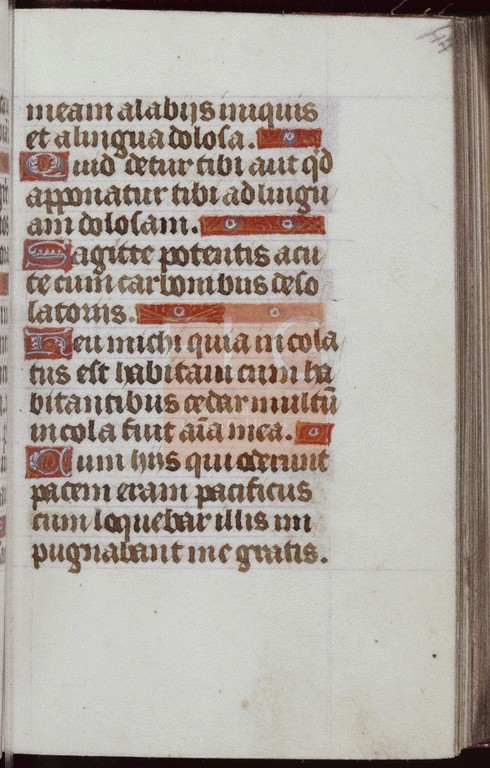 meam alabijs iniquis
et alingua dolosa.
Quid detur tibi aut qd̄
apponatur tibi ad lingu
am dolosam.
Sagitte potentis acu
te cum carbonibus deso
latoriis.
Heu michi quia incola
tus est habitaui cum ha
bitantibus cedar multū
incola fuit aīa mea.
Cum hijs qui oderunt
pacem eram pacificus
cum loquebar illis im
pugnabant me gratis.